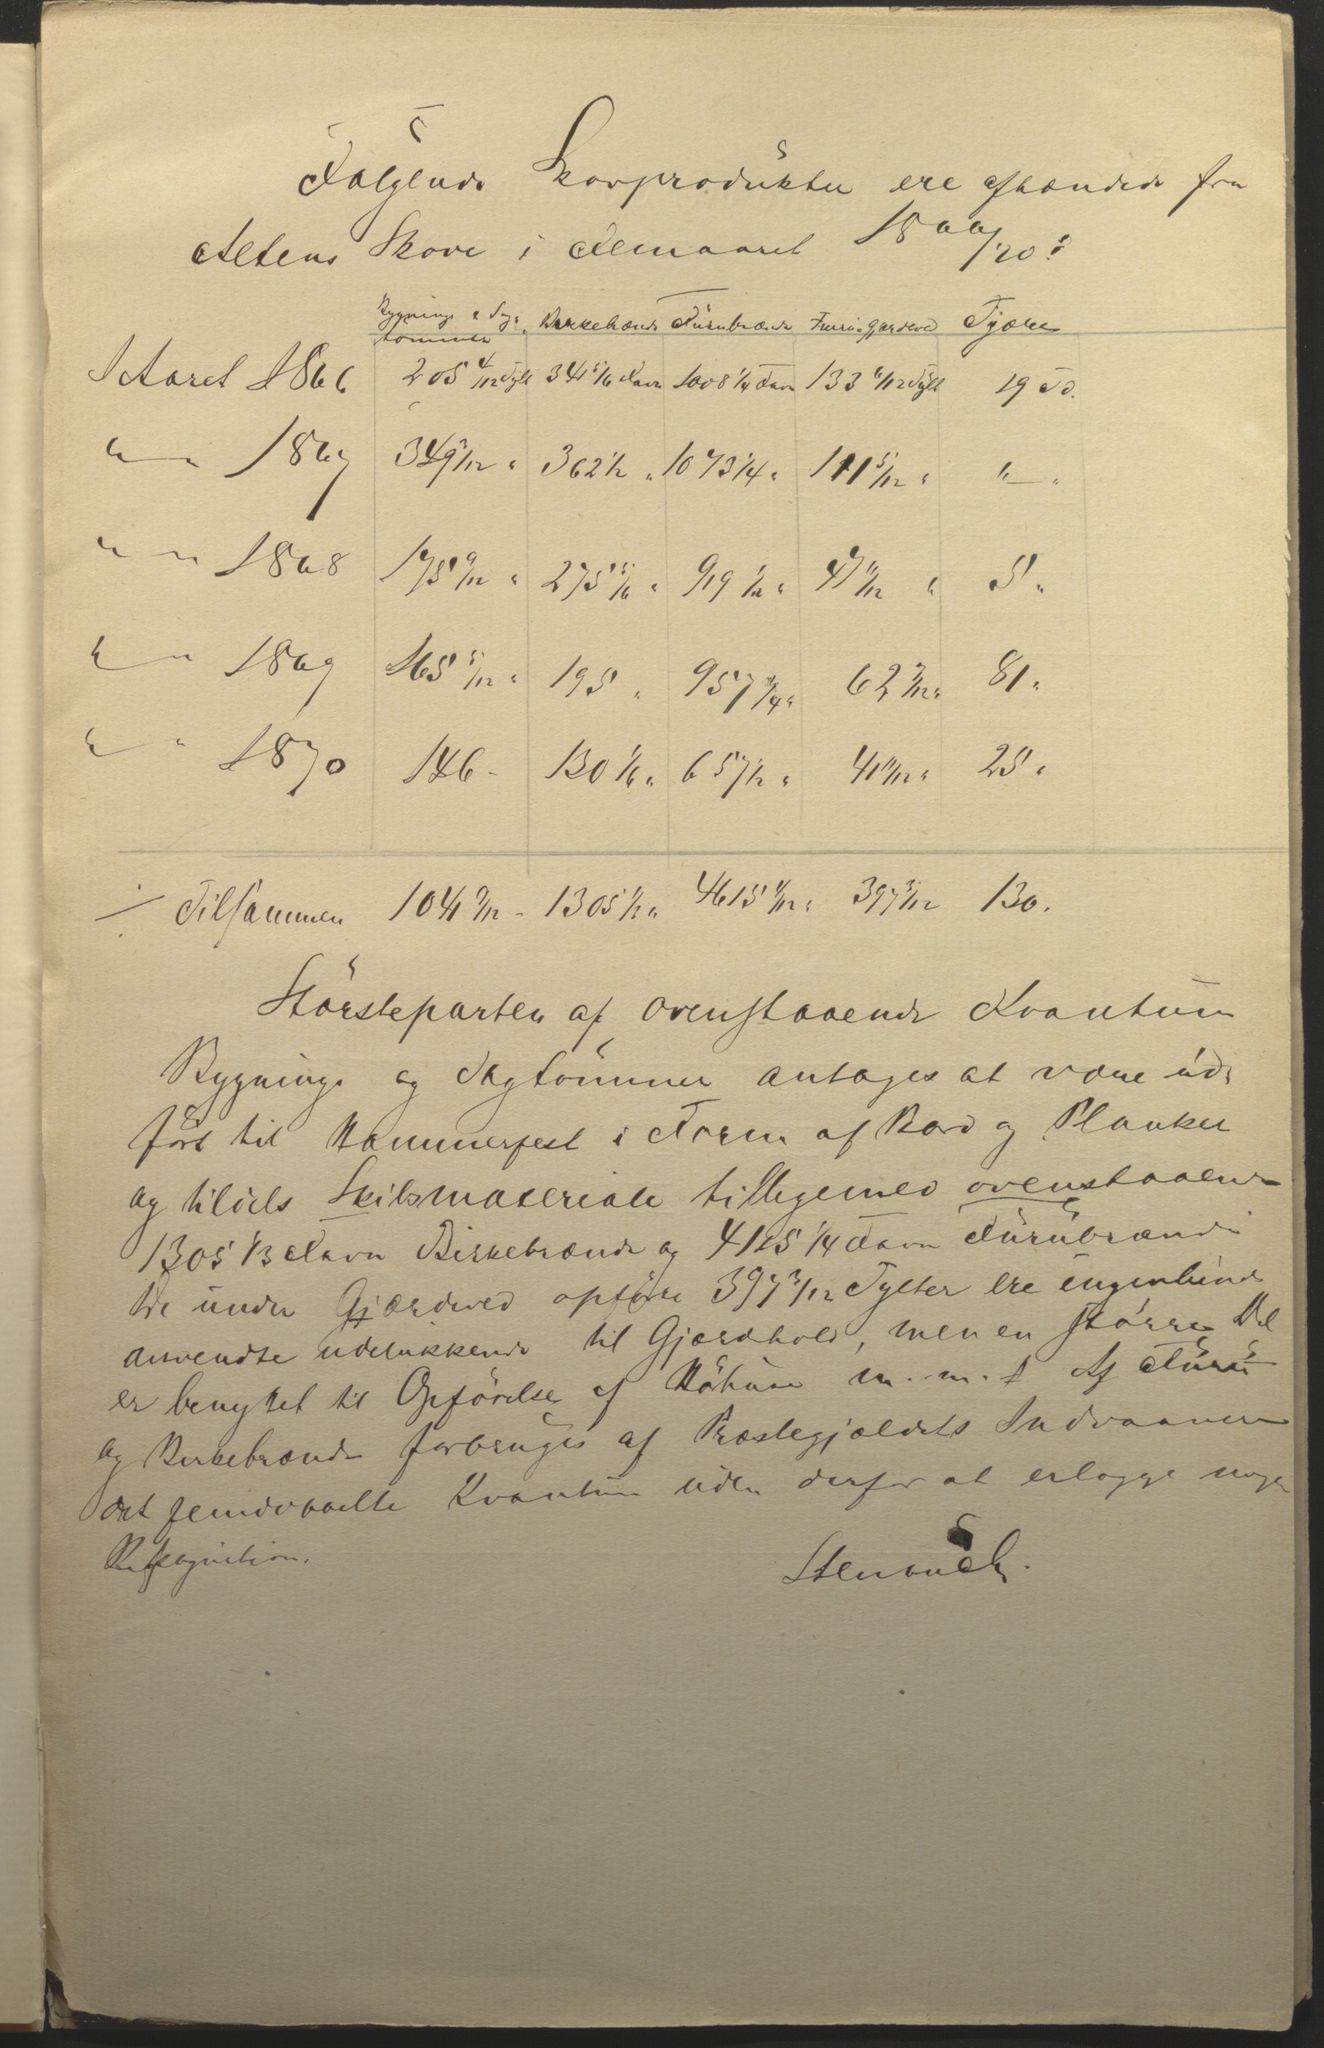 Følgende Skovprodukter ere afhændede fra
Altens Skove i Femaaret 1866/70:
Bygnings & Sag- Birkebrænde Furubrænde Furu-Gjærdeved Tjære
tømmer
I Aaret 1866 205 4/12 Tylt 341 5/6 Favn 1008 1/4 Favn 133 6/12 Tylt 19 Td.
" — " 1867 349 3/12 " 362 1/2 " 1073 1/4 " 111 5/12 " " — "
" — " 1868 175 9/12 " 275 5/6 " 919 1/12 " 47 11/12 " 5 "
" — " 1869 165 5/12 " 195 " 957 1/4 " 62 7/12 " 81 "
" — " 1870 146 - 130 1/6 " 657 1/2 " 41 11/12 " 25 "
Tilsammen 1041 9/12 - 1305 1/3 " 4615 4/12 " 397 3/12 130.
Størsteparten af ovenstaaende Kvantum
Bygnings og Sagtømmer antages at være ud-
ført til Hammerfest i Form af Bord og Planker
og tildels Skibsmateriale tilligemed ovenstaaende
1305 1/3 Favn Birkebrænde og 4125 1/4 Favn Furubrænde
De under Gjærdeved opførte 397 3/12 Tylter ere ingenlunde
anvendte udelukkende til Gjærdehold, men en større Del
er benyttet til Opførelse af Høhuse m. m. Af Furu
og Birkebrænde forbruges af Præstegjældets Indvaanere
det femdobbelte Kvantum uden derfor at erlægge nogen
Rekognition.